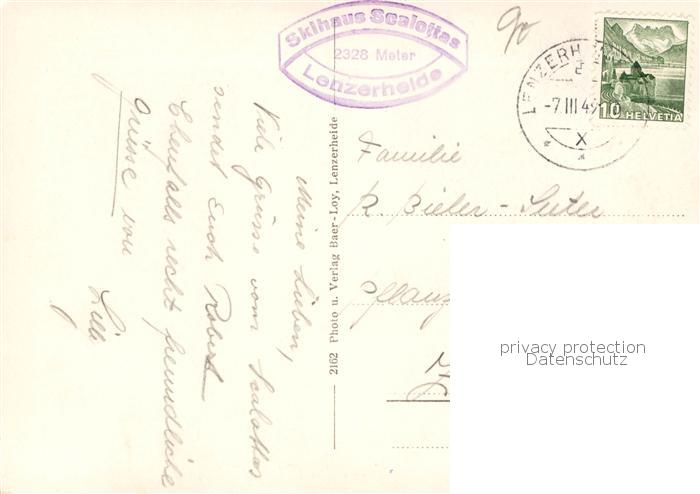 Skihaus Scalottas
2328 Meter
Lenzerheide
90
LENZERH
-7.III.4
X
10 HELVETIA
Meine Lieben,
Viele Grüsse vom Scalottas
sendet Euch Robert
Ebenfalls recht freundliche
Grüsse von
Lilli
2162 Photo u. Verlag Baer-Loy, Lenzerheide
Familie
R. Bieler-Suter
privacy protection
Datenschutz